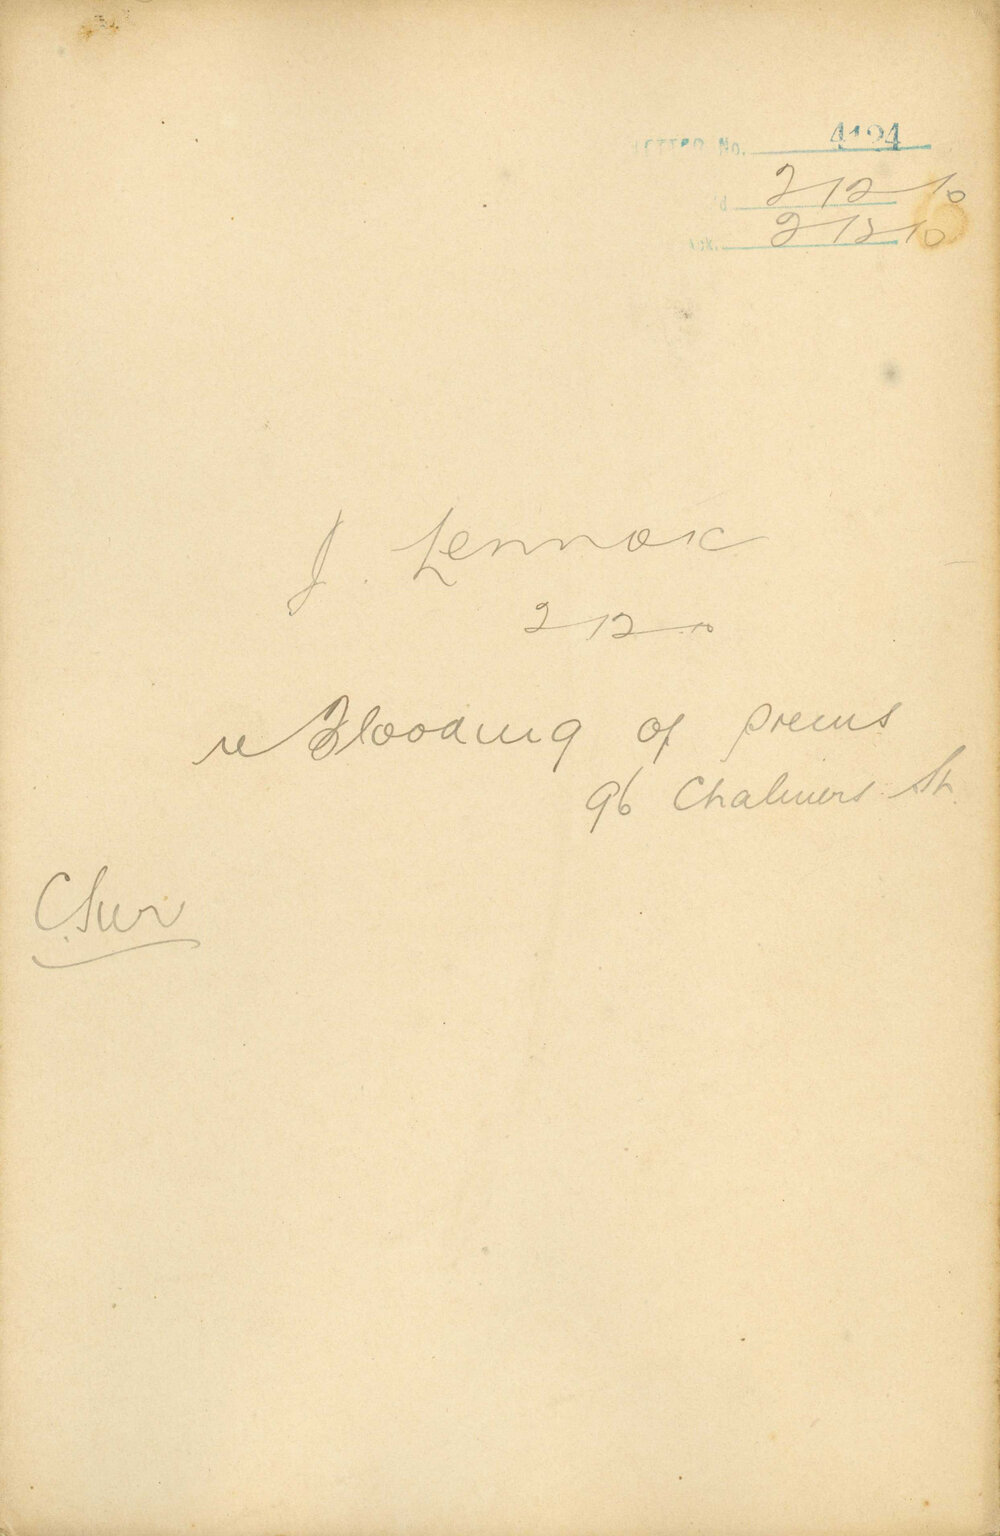 LETTER No. 4124
2/12/10
Ack. 2/12/10
J. Lennox
2/12/10
re Flooding of prems
96 Chalmers St.
C. Sur